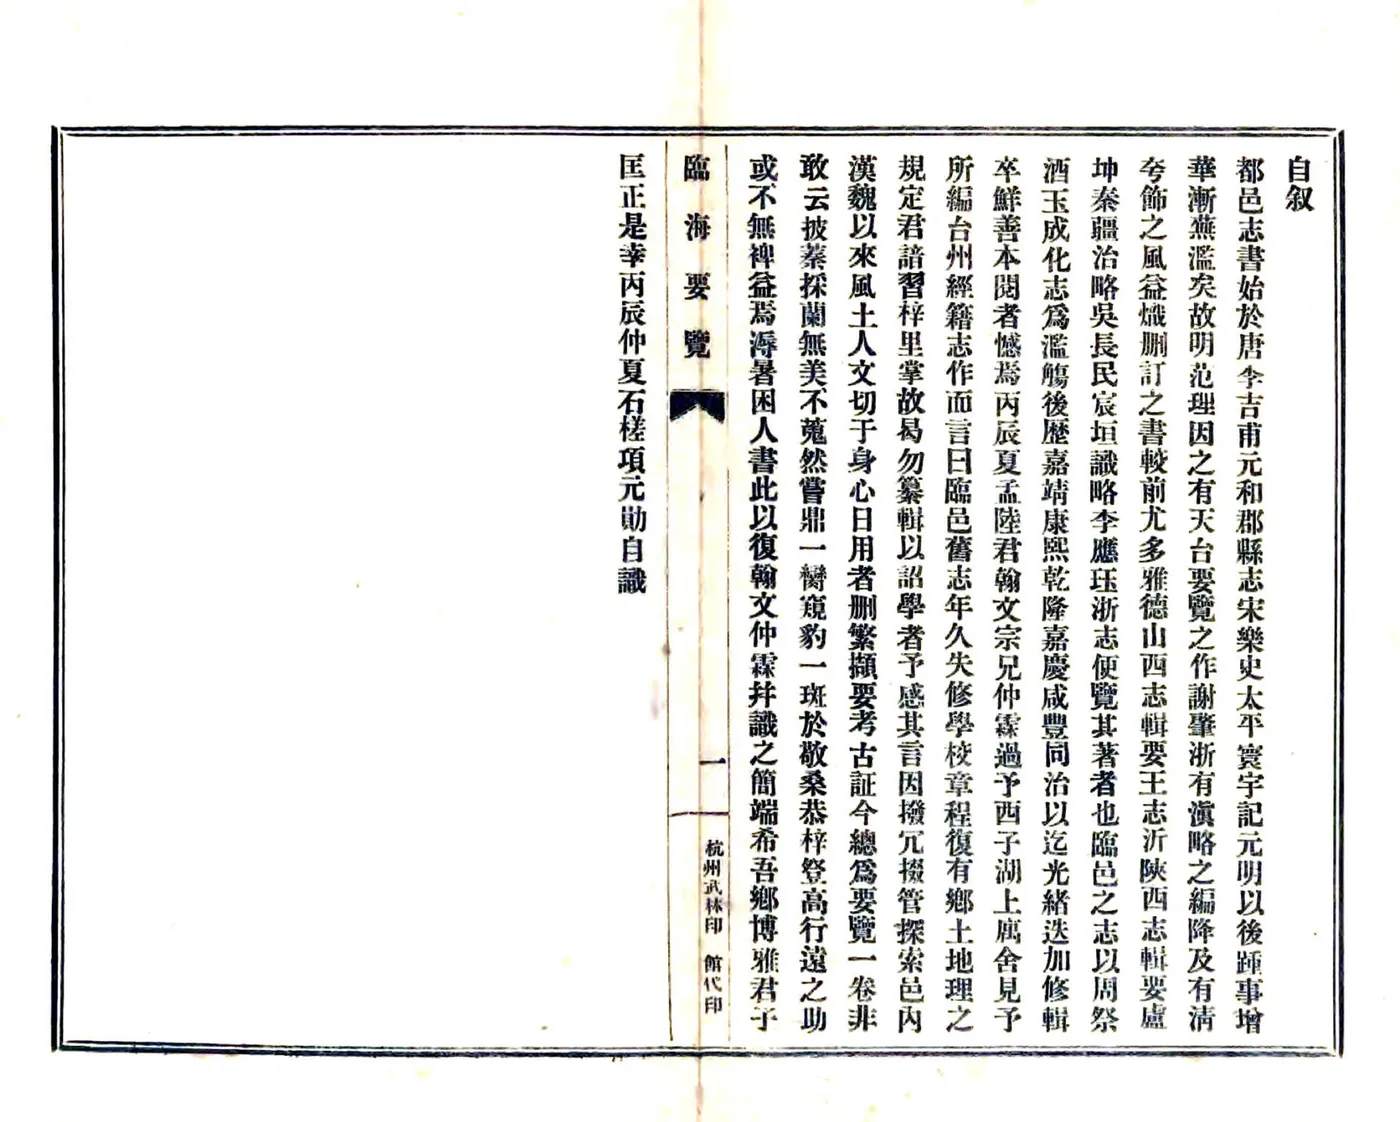 自叙
都邑志書始於唐李吉甫元和郡縣志宋樂史太平寰宇記元明以後踵事增
華漸蕪濫矣故明范理因之有天台要覽之作謝肇浙有滇略之編降及有清
夸飾之風益熾删訂之書較前尤多雅德山西志輯要王志沂陝西志輯要盧
坤秦疆治略吳長民宸垣識略李應珏浙志便覽其著者也臨邑之志以周祭
酒玉成化志爲濫觴後歷嘉靖康熙乾隆嘉慶咸豐同治以迄光緒迭加修輯
卒鮮善本閱者憾焉丙辰夏孟陸君翰文宗兄仲霖過予西子湖上寓舍見予
所編台州經籍志作而言曰臨邑舊志年久失修學校章程復有鄉土地理之
規定君諳習梓里掌故曷勿纂輯以詔學者予感其言因撥冗掇管探索邑內
漢魏以來風土人文切于身心日用者删繁擷要考古証今總爲要覽一卷非
敢云披蓁採蘭無美不蒐然嘗鼎一臠窺豹一斑於敬桑恭梓登高行遠之助
或不無裨益焉溽暑困人書此以復翰文仲霖并識之簡端希吾鄉博雅君子
臨海要覽
一
杭州武林印 館代印
匡正是幸丙辰仲夏石槎項元勛自識